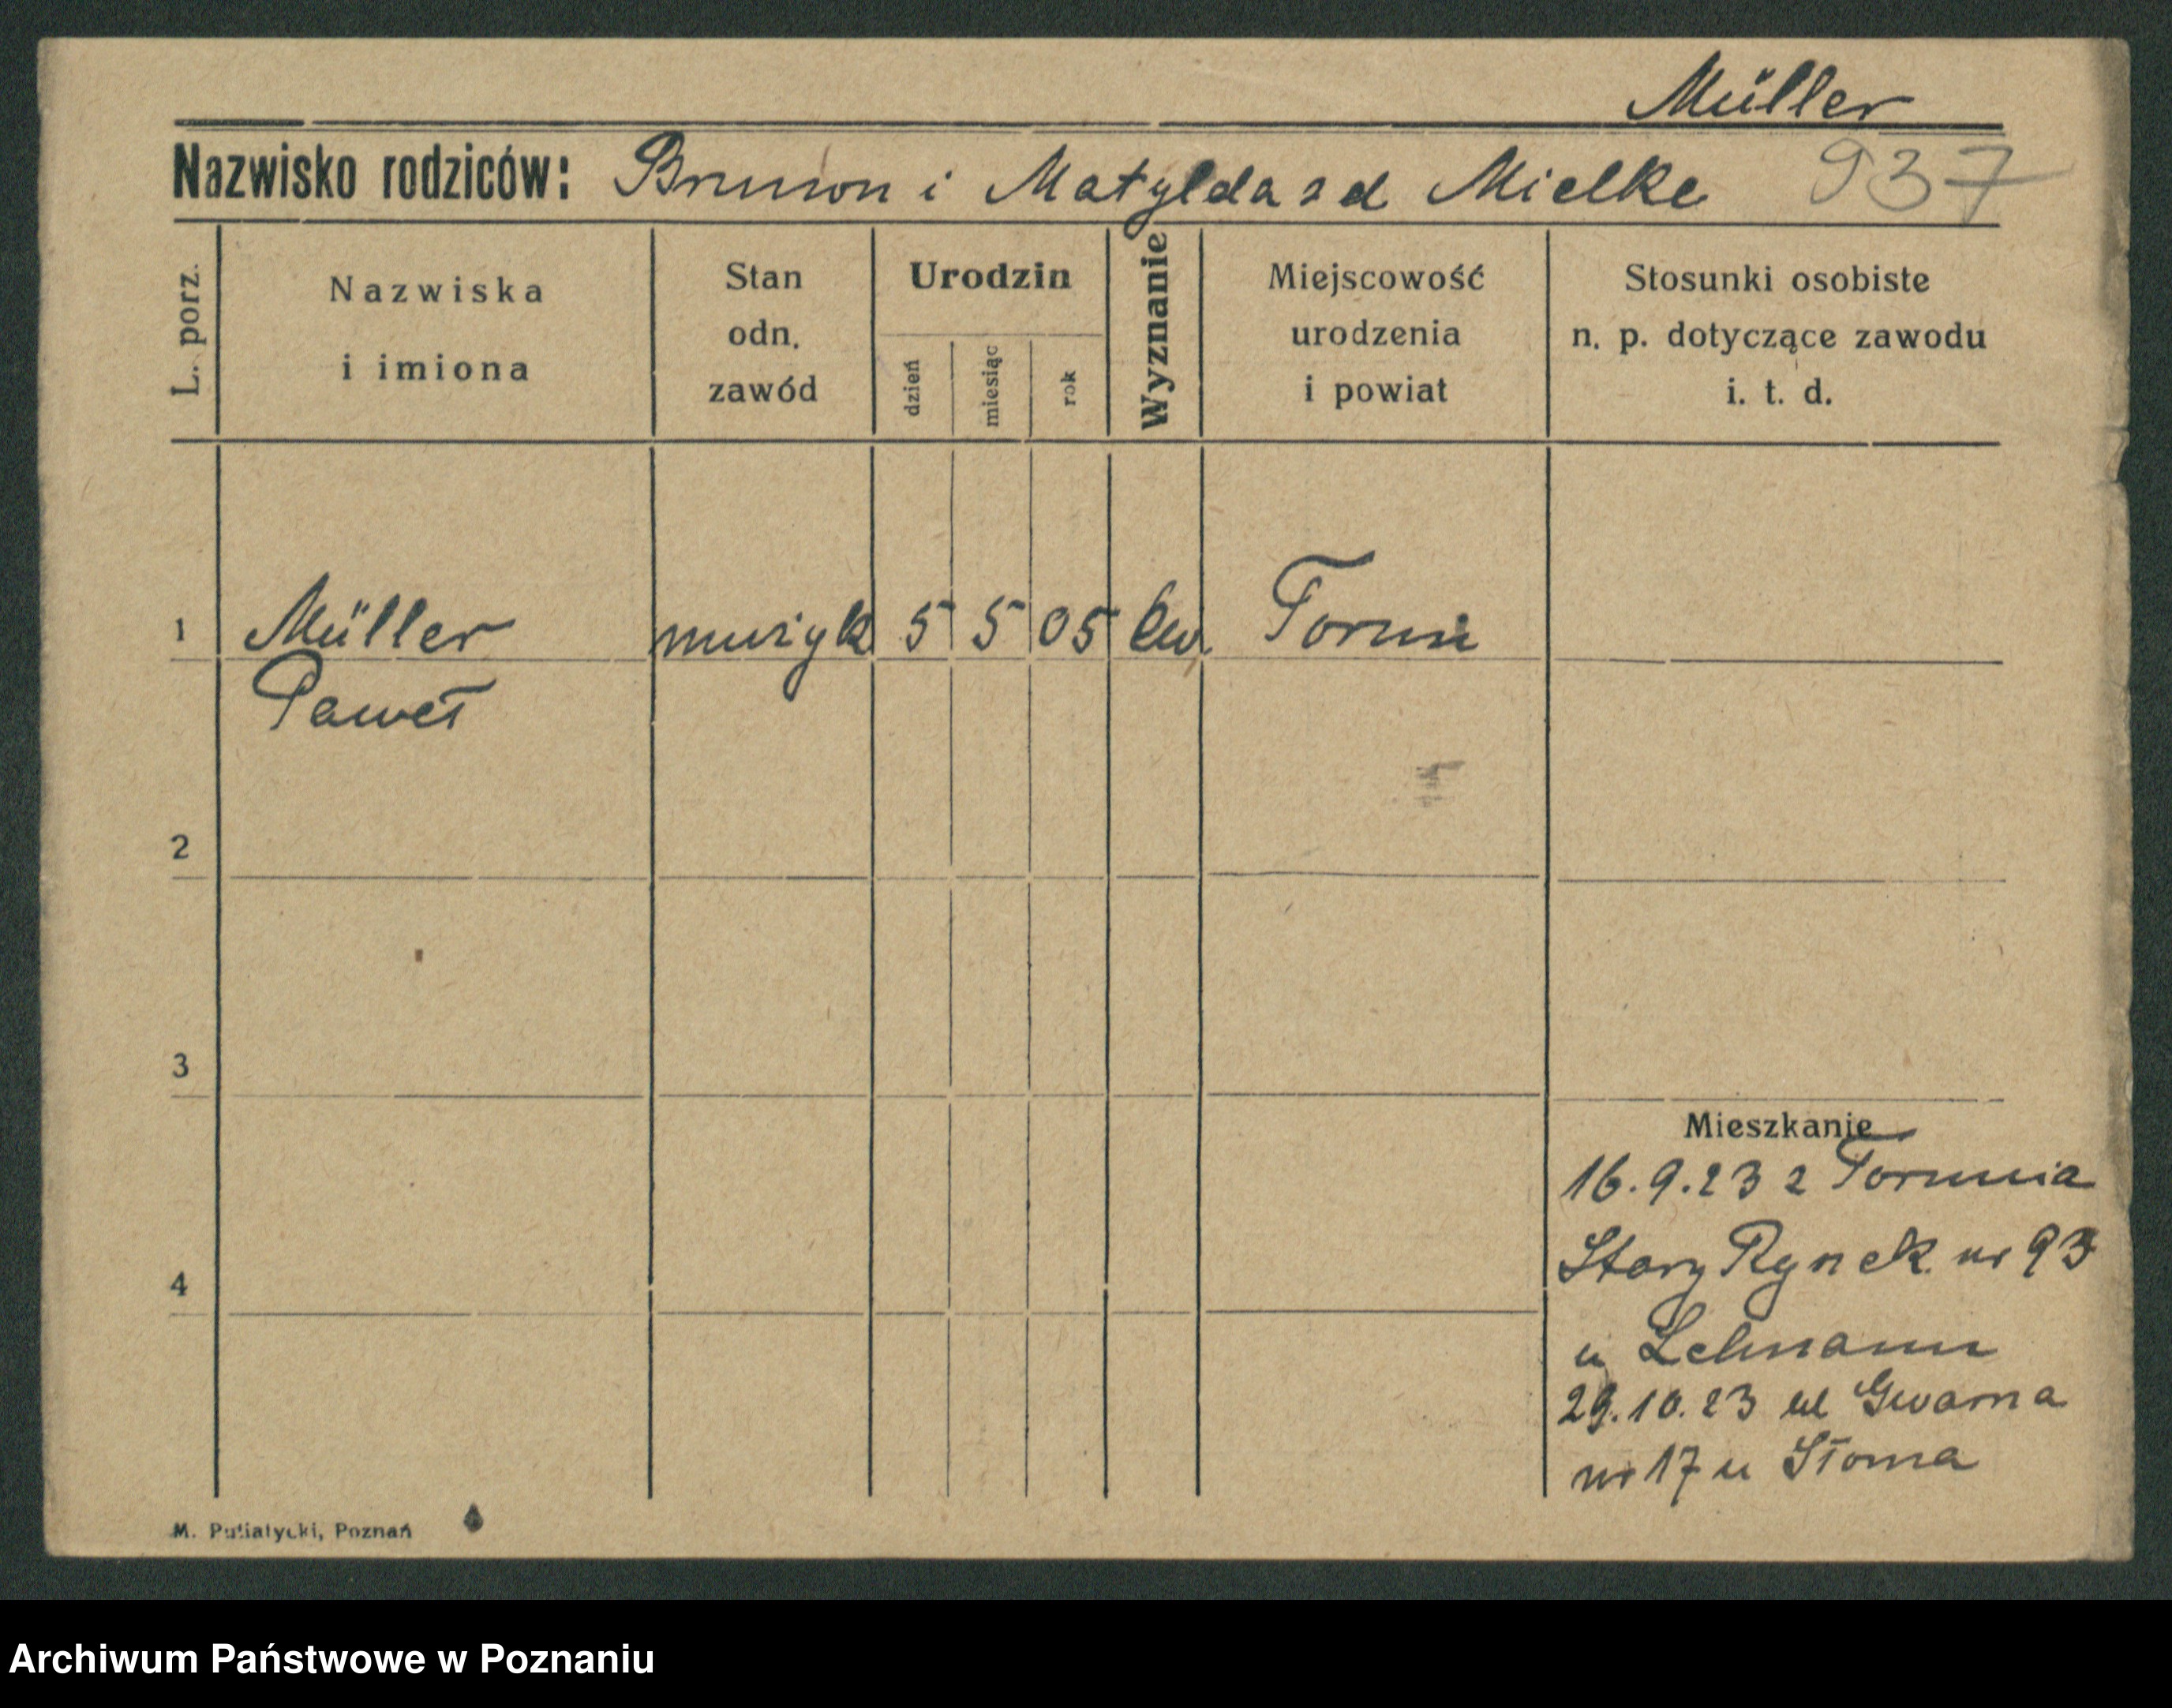 Müller
Nazwisko rodziców: Brunon i Matylda zd Mielke 937
L. porz.
Nazwiska
i imiona
Stan
odn.
zawód
Urodzin
dzień
miesiąc
rok
Wyznanie
Miejscowość
urodzenia
i powiat
Stosunki osobiste
n. p. dotyczące zawodu
i. t. d.
1 Müller muzyk 5 5 05 Ew. Toruń
Paweł
2
3
Mieszkanie
16.9.23 z Torunia
4
Stary Rynek nr 93
u Lehmann
29.10.23 ul Gwarna
nr 17 u Słoma
M. Putiatycki, Poznań
Archiwum Państwowe w Poznaniu